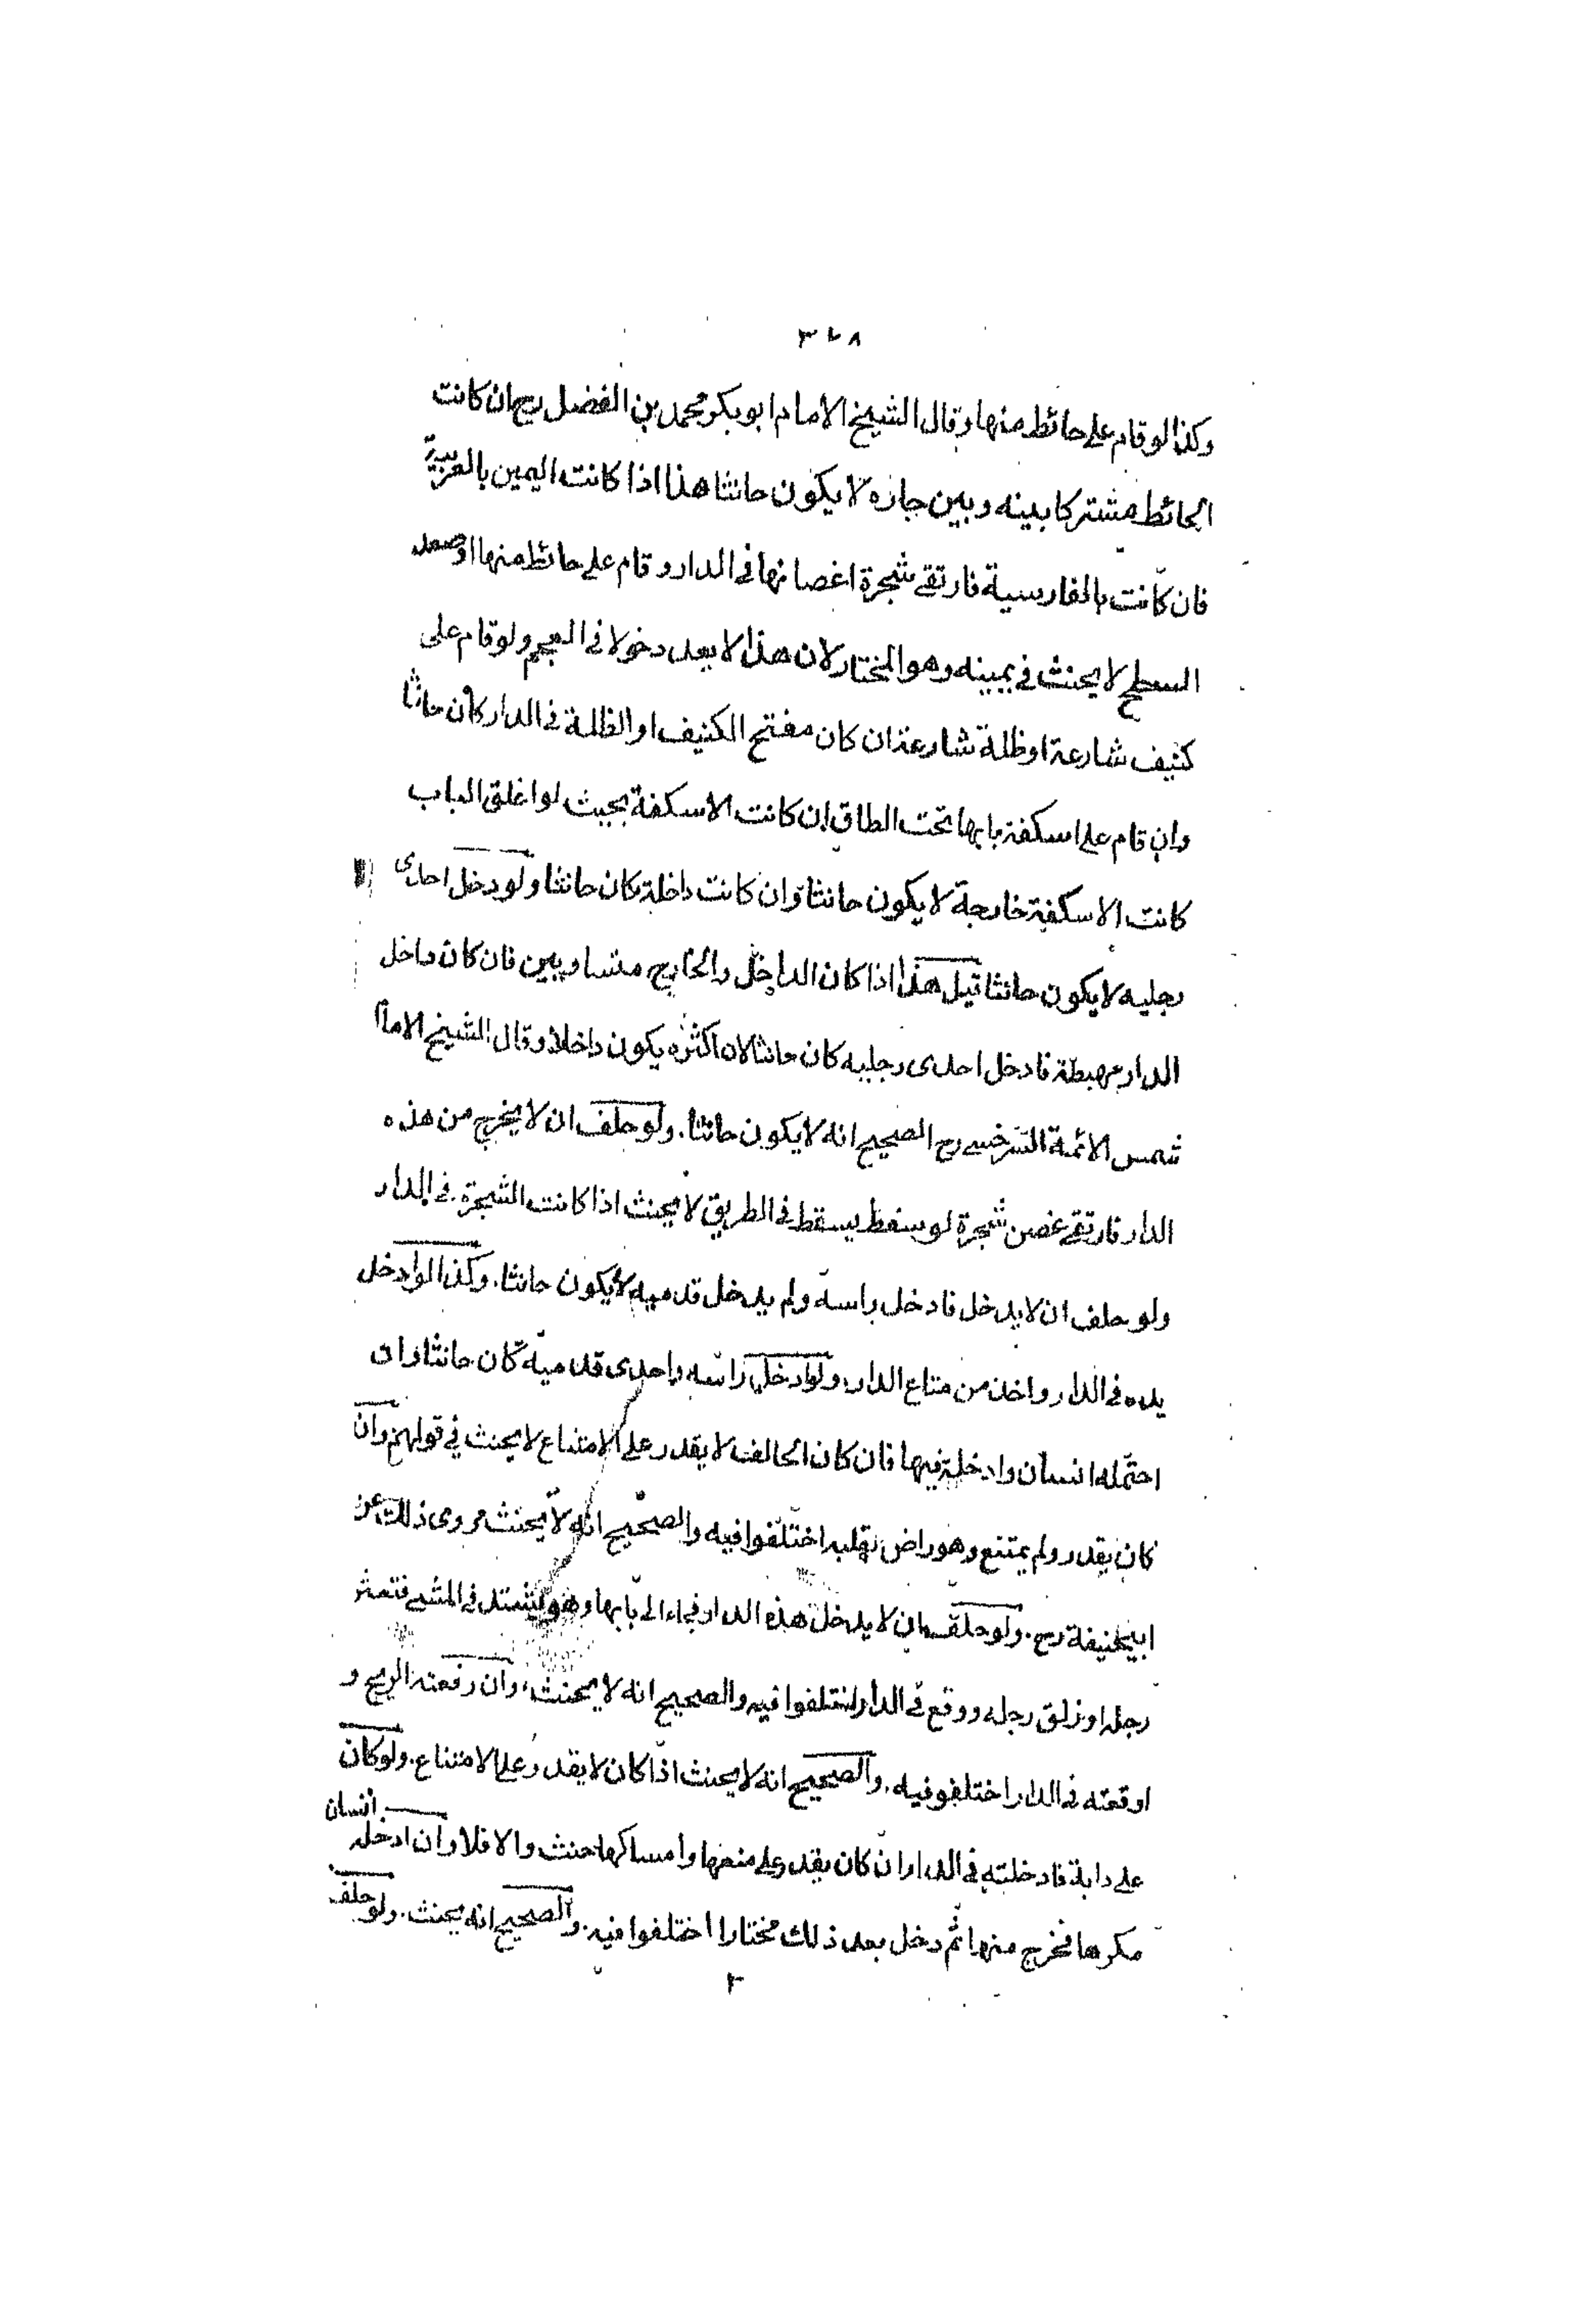 ٣٧٨
وكذا لو قام على حائط منها وقال الشيخ الامام ابو بكر محمد بن الفضل رح ان كانت
الحائط مشتركا بينه وبين جاره لا يكون حانثا هذا اذا كانت اليمين بالعربية
فان كانت بالفارسية فارتقى شجرة اغصانها في الدار وقام على حائط منها او صعد
السطح لا يحنث في يمينه وهو المختار لان هذا لا يعد دخولا في العجم ولو قام على
كنيف شارعة او ظلة شارعة ان كان مفتح الكنيف او الظلة في الدار كان حانثا
وان قام على اسكفة بابها تحت الطاق ان كانت الاسكفة بحيث لو اغلق الباب
كانت الاسكفة خارجة لا يكون حانثا وان كانت داخلة كان حانثا ولو دخل احدى
رجليه لا يكون حانثا قيل هذا اذا كان الداخل والخارج متساويين فان كان داخل
الدار مهبطة فادخل احدى رجليه كان حانثا لان اكثره يكون داخلا وقال الشيخ الامام
شمس الائمة السرخسي رح الصحيح انه لا يكون حانثا. ولو حلف ان لا يخرج من هذه
الدار فارتقى غصن شجرة لو سقط يسقط في الطريق لا يحنث اذا كانت الشجرة في الدار
ولو حلف ان لا يدخل فادخل راسه ولم يدخل قدميه لا يكون حانثا. وكذا لو ادخل
يده في الدار واخذ من متاع الدار ولو ادخل راسه واحدى قدميه كان حانثا وان
احتمله انسان وادخله فيها فان كان الحالف لا يقدر على الامتناع لا يحنث في قولهم وان
كان يقدر ولم يمتنع وهو راض بقلبه اختلفوا فيه والصحيح انه لا يحنث مروى ذلك عن
ابيحنيفة رح. ولو حلف ان لا يدخل هذه الدار فجاء الى بابها وهو يشتد في المشي فتعثر
رجله او زلق رجله ووقع في الدار اختلفوا فيه والصحيح انه لا يحنث، وان رفعته الريح و
اوقعته في الدار اختلفو فيه. والصحيح انه لا يحنث اذا كان لا يقدر على الامتناع. ولو كان
على دابة فادخلته في الدار ان كان يقدر على منعها وامساكها حنث والا فلا وان ادخله انسان
مكرها فخرج منها ثم دخل بعد ذلك مختارا اختلفوا فيه. والصحيح انه يحنث. ولو حلف